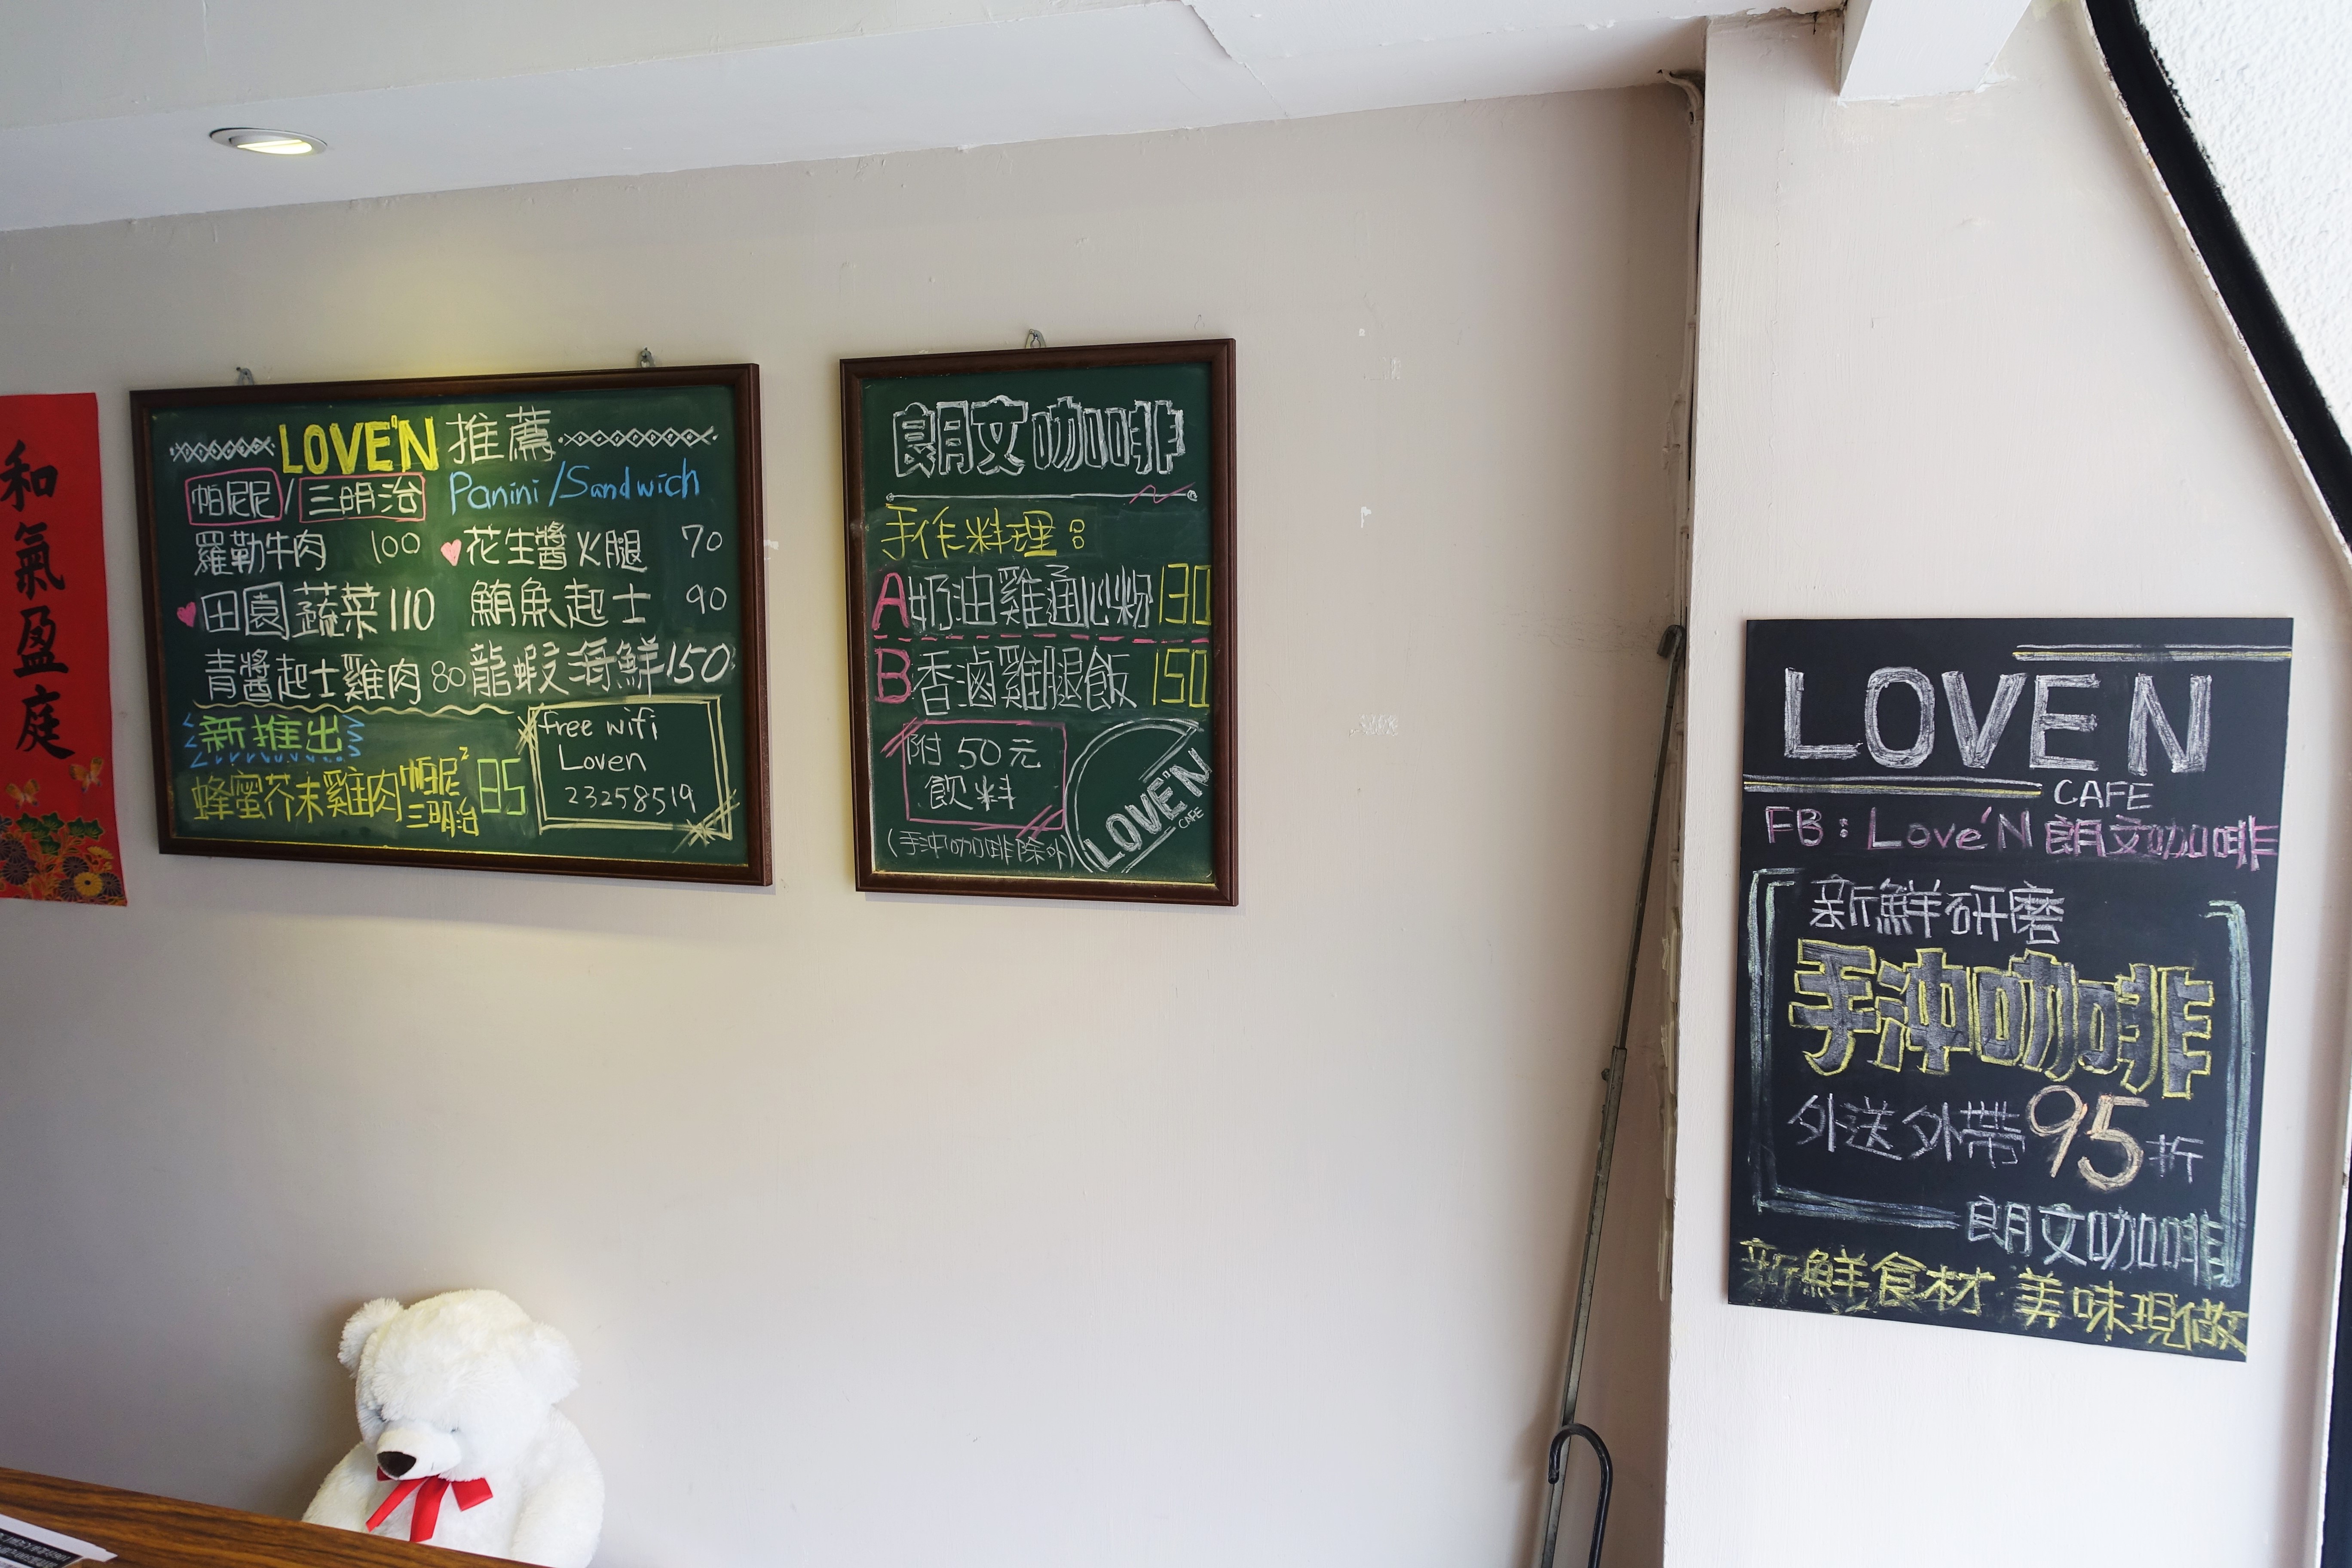 和氣盈庭
LOVE'N 推薦
帕尼尼/三明治 Panini/Sandwich
羅勒牛肉 100
田園蔬菜 110
青醬起士雞肉 80
花生醬火腿 70
鮪魚起士 90
龍蝦海鮮 150
新推出
蜂蜜芥末雞肉 帕尼² 三明治 85
free wifi
Loven
23258519
朗文咖啡
手作料理:
A 奶油雞通心粉 130
B 香滷雞腿飯 150
附 50元
飲料
(手沖咖啡除外)
LOVE'N
CAFE
LOVE N
CAFE
FB: Love'N 朗文咖啡
新鮮研磨
手沖咖啡
外送外帶 95折
朗文咖啡
新鮮食材·美味現做